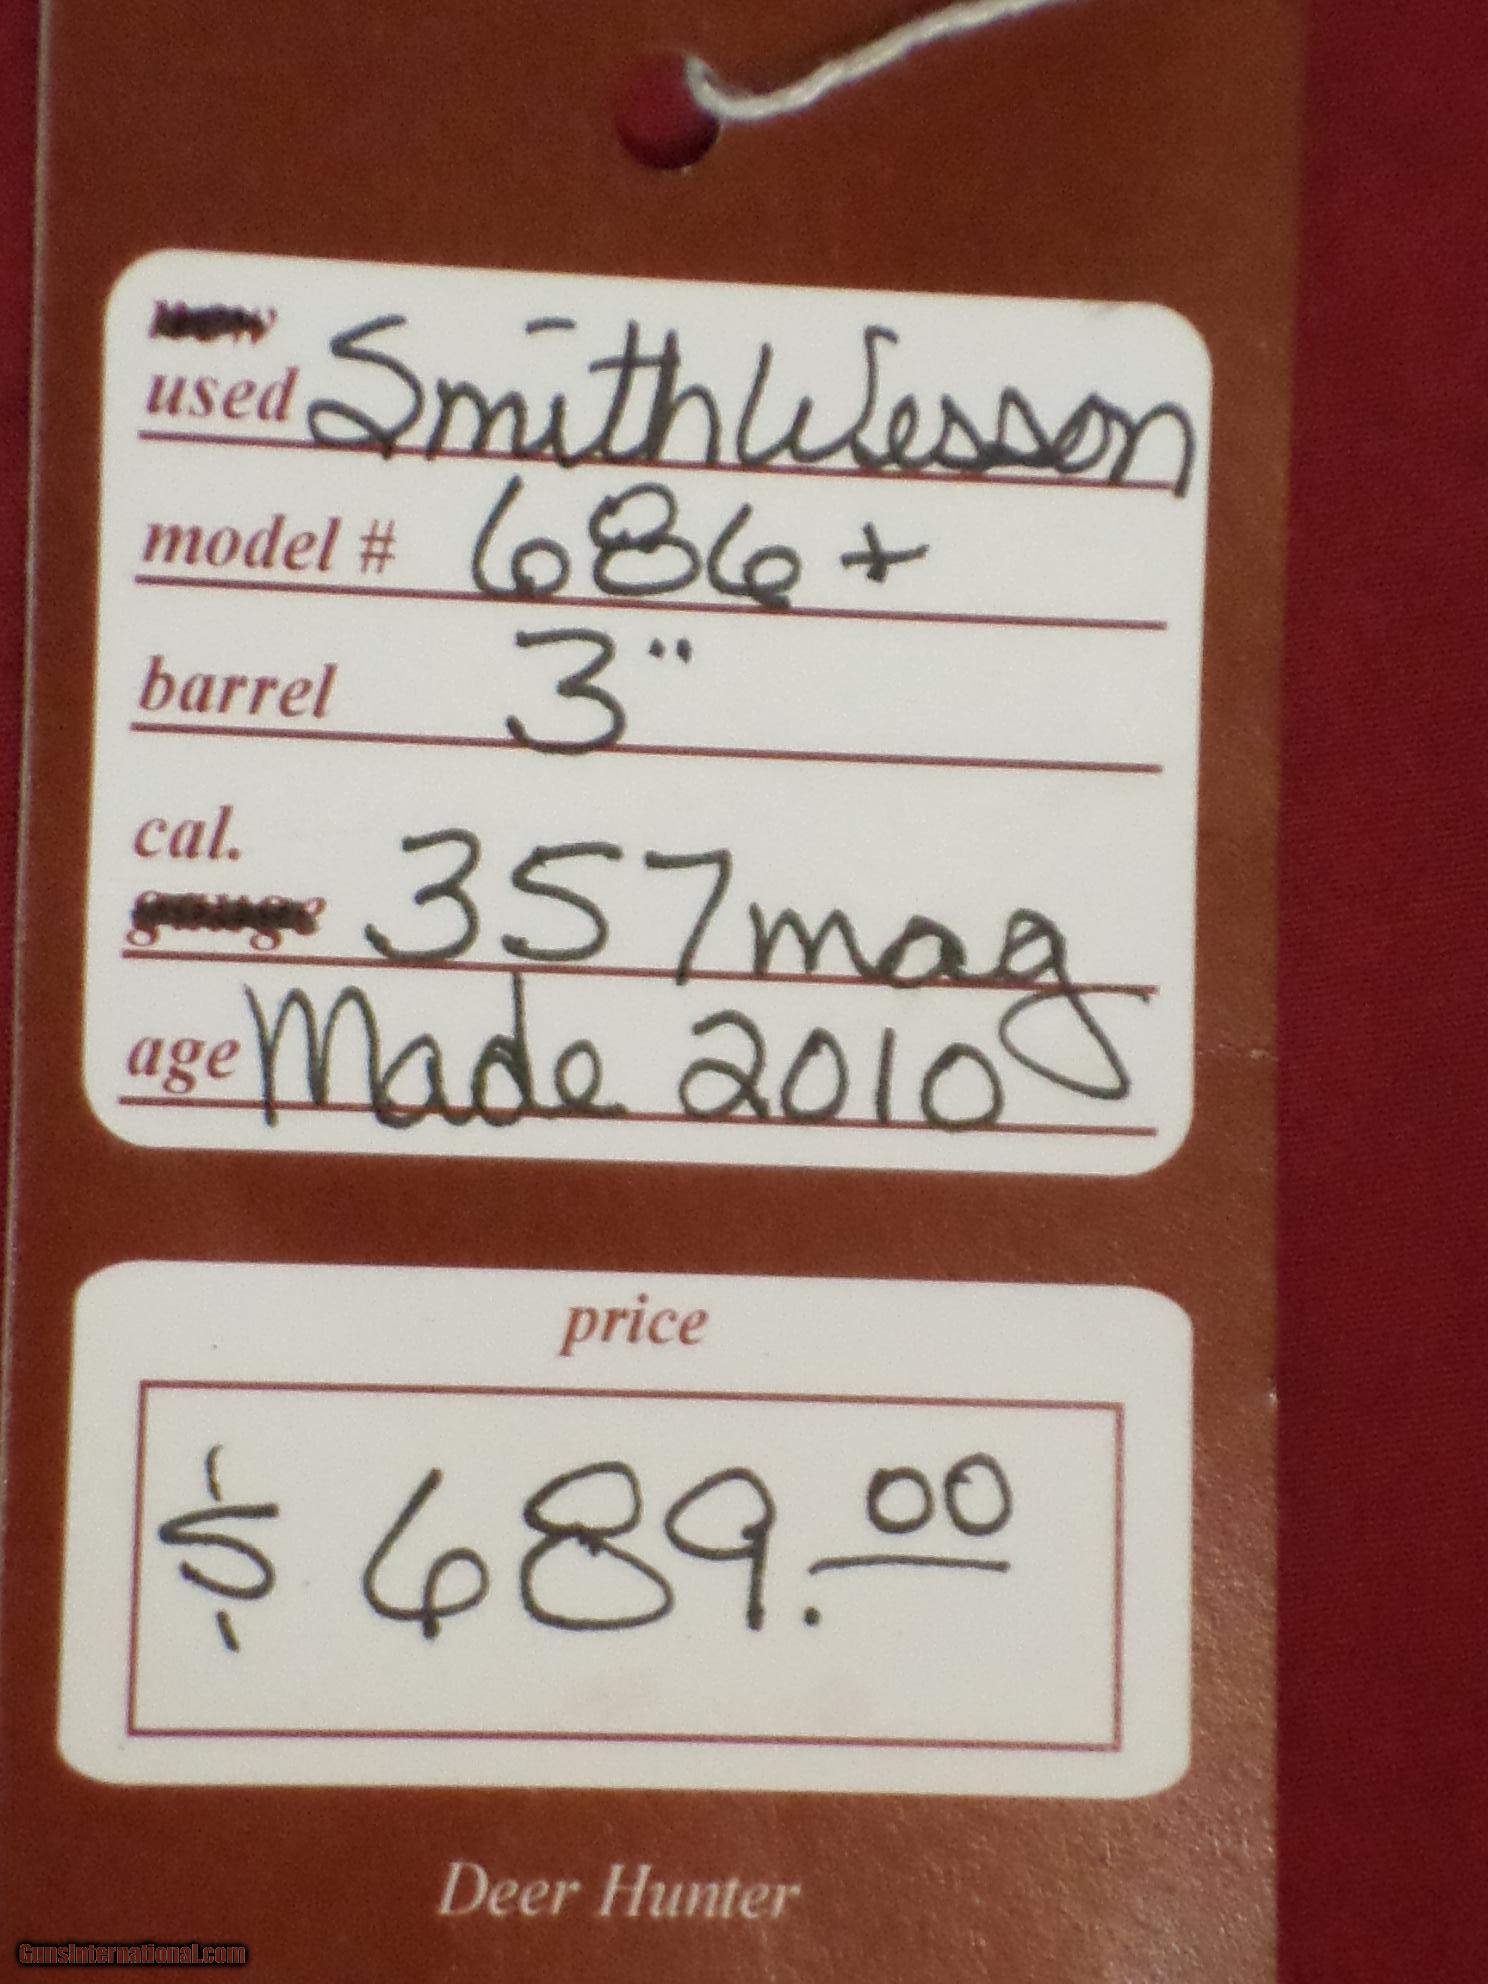 new
used Smith Wesson
model # 686+
barrel 3"
cal.
gauge 357 mag
age Made 2010
price
$ 689.00
Deer Hunter
GunsInternational.com